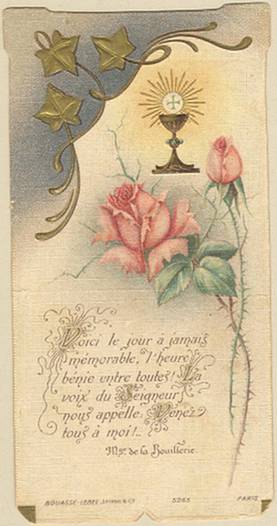 Voici le jour à jamais
mémorable, l'heure
bénie entre toutes! La
voix du Seigneur
nous appelle: Venez
tous à moi!..
Mgr. de la Bouillerie.
BOUASSE-LEBEL 5265 PARIS